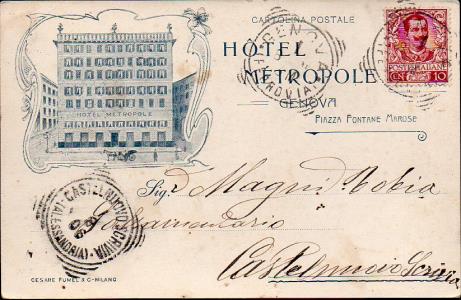 CARTOLINA POSTALE
HÔTEL
METROPOLE
GENOVA
PIAZZA FONTANE MAROSE
POSTE ITALIANE
CEN 10
GENOVA
FERROVIA
HOTEL METROPOLE
CASTELNUOVO SCRIVIA
(ALESSANDRIA)
Sig. Magni Tobia
Castelnuovo Scrivia
CESARE FUMEL & C-MILANO